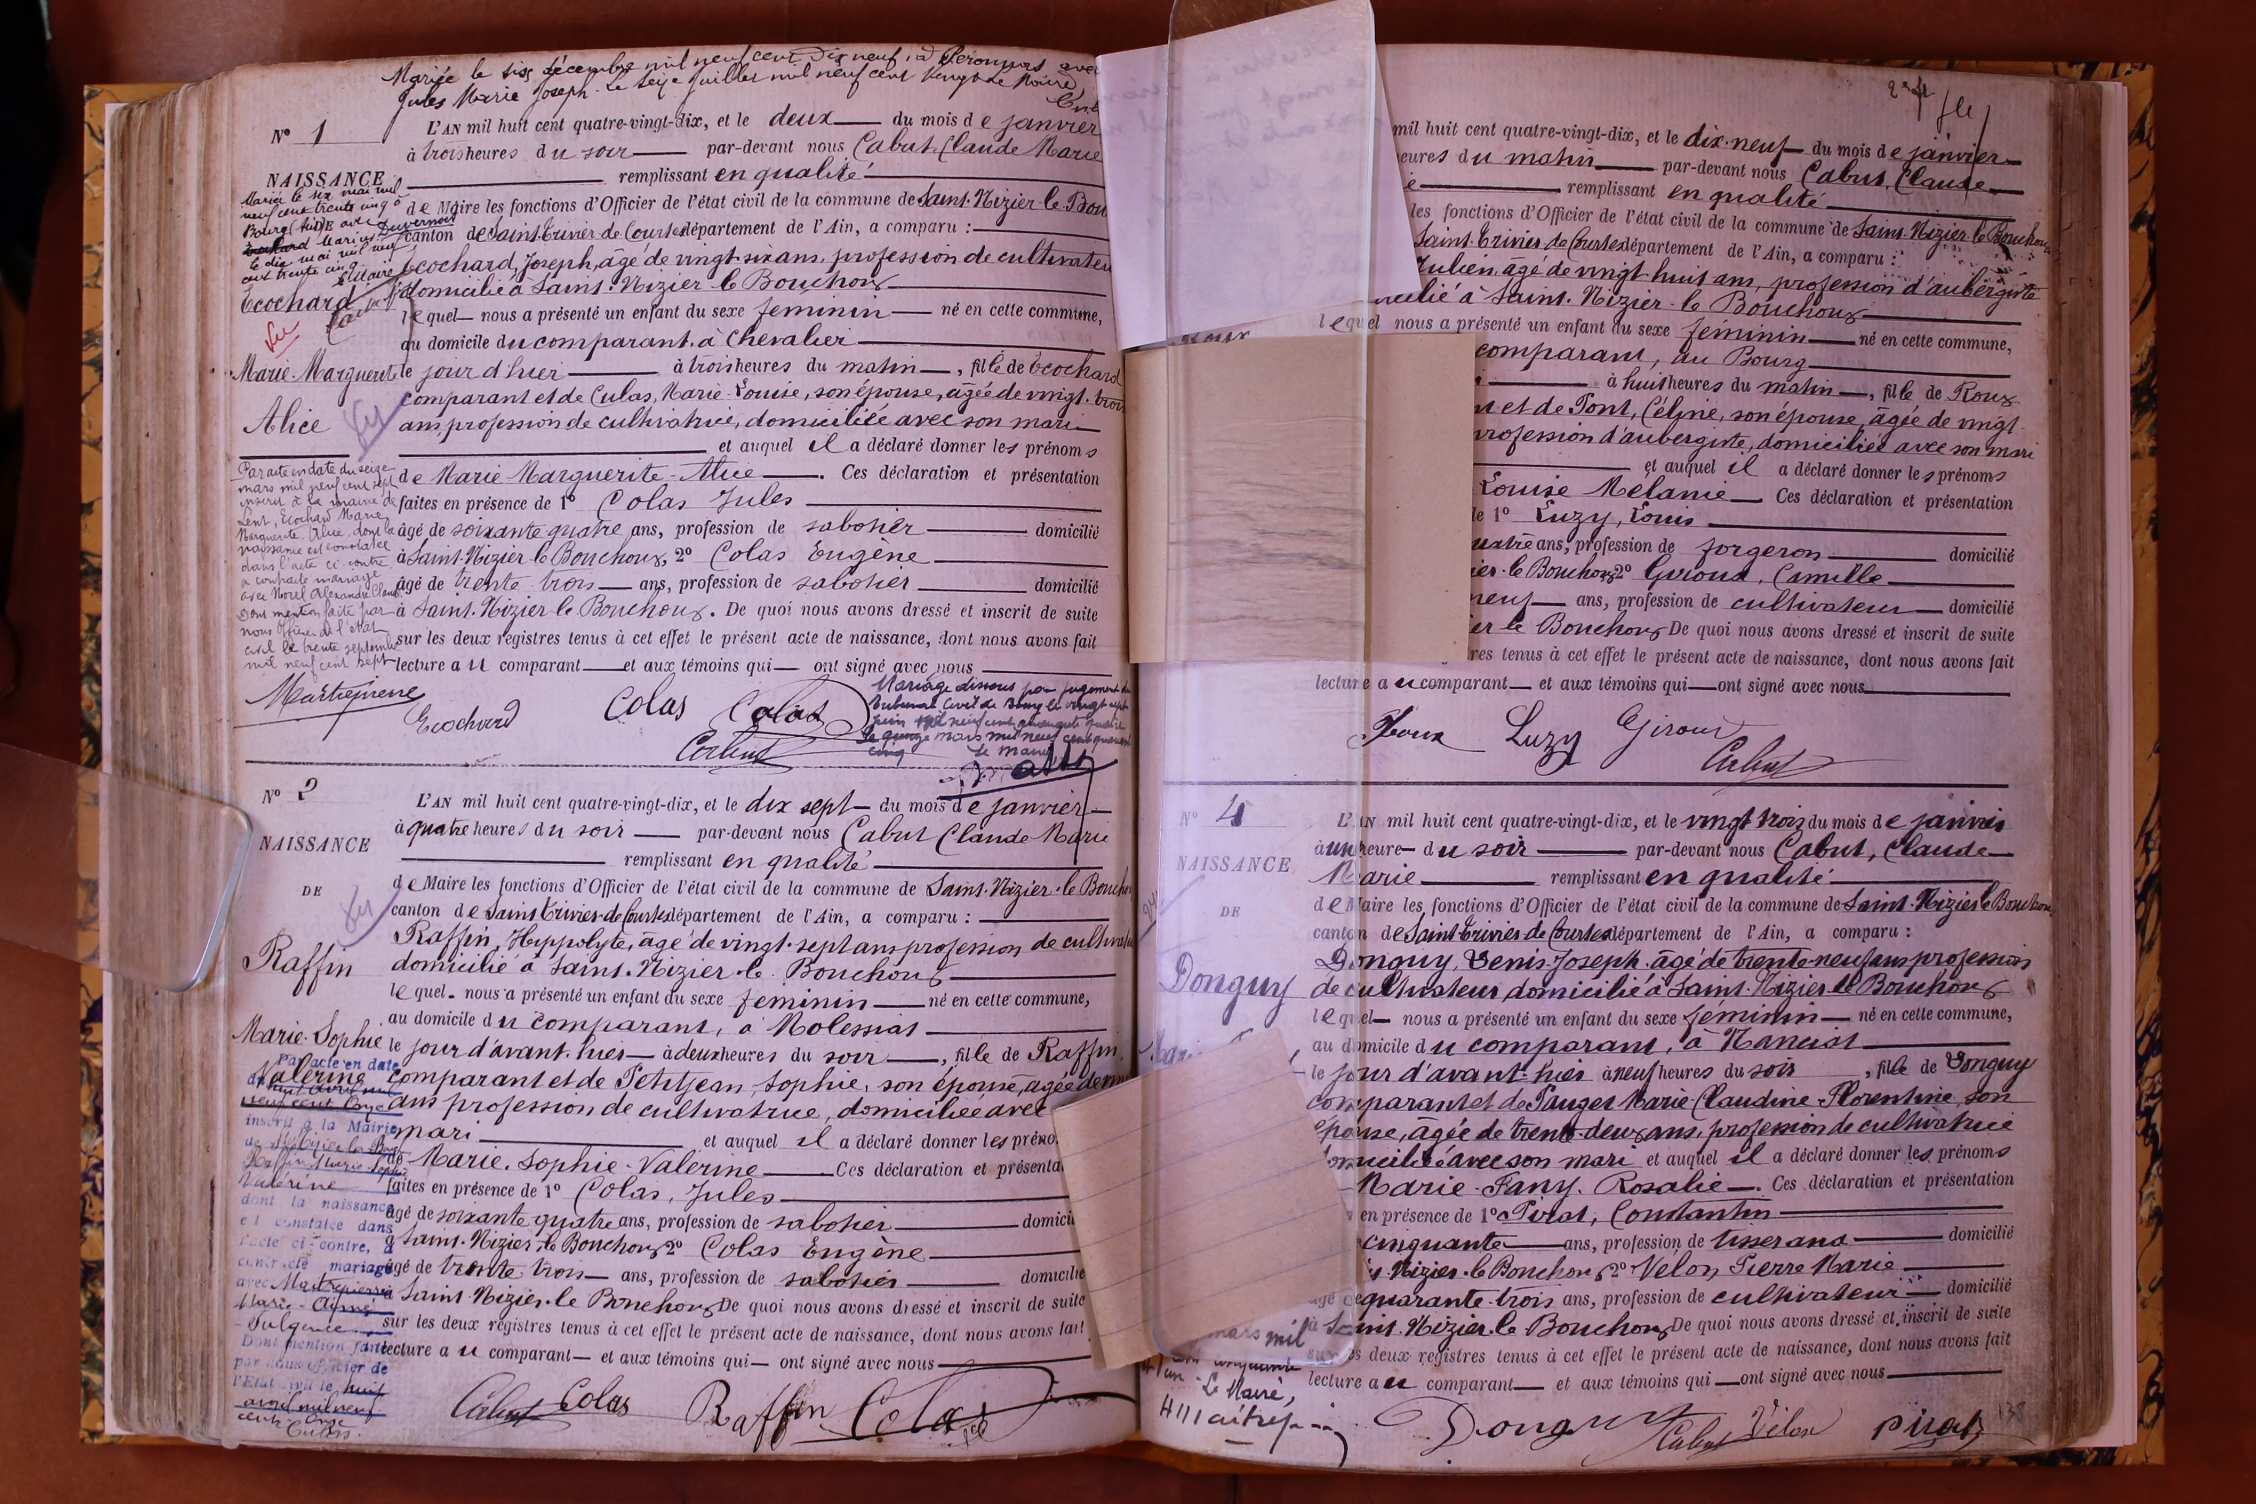 Mariée le six décembre mil neuf cent dix neuf, à Peronnas avec
Jules Marie Joseph. Le seize Juillet mil neuf cent vingt. Le Maire
N° 1
L'AN mil huit cent quatre-vingt-dix, et le deux du mois de janvier
à trois heures du soir par-devant nous Cabut Claude Marie
NAISSANCE
remplissant en qualité
de Maire les fonctions d'Officier de l'état civil de la commune de Saint-Nizier-le-Bou
canton de Saint-Trivier-de-Courtes département de l'Ain, a comparu :
Ecochard, Joseph, âgé de vingt-six ans, profession de cultivateu
domicilié à Saint-Nizier-le-Bouchoux
lequel nous a présenté un enfant du sexe feminin né en cette commune,
au domicile du comparant, à Chevalier
le jour d'hier à trois heures du matin, fille de Ecochard
comparant et de Culas, Marie-Louise, son épouse, âgée de vingt-trois
ans, profession de cultivatrice, domiciliée avec son mari
et auquel il a déclaré donner les prénoms
de Marie Marguerite-Alice. Ces déclaration et présentation
faites en présence de 1° Colas Jules
âgé de soixante quatre ans, profession de sabotier domicilié
à Saint-Nizier-le-Bouchoux, 2° Colas Eugène
âgé de trente trois ans, profession de sabotier domicilié
à Saint-Nizier-le-Bouchoux. De quoi nous avons dressé et inscrit de suite
sur les deux registres tenus à cet effet le présent acte de naissance, dont nous avons fait
lecture au comparant et aux témoins qui ont signé avec nous
Mariée le six mai mil
neuf cent trente cinq à
Bourg (Ain) avec
Marius Duvernois
le dix mai mil neuf
cent trente cinq
Ecochard
Vu
Marie-Marguerite
Alice
Vu
Par acte en date du seize
mars mil neuf cent sept
inscrit à la mairie de
Lent, Ecochard Marie
Marguerite Alice, dont la
naissance est constatée
dans l'acte ci-contre
a contracté mariage
avec Morel Alexandre Claude
Dont mention faite par
nous Officier de l'état
civil le trente septembre
mil neuf cent sept
Ecochard Colas Colas
Cabut
Mariage dissous par jugement du
Tribunal Civil de Bourg le vingt sept
juin mil neuf cent quarante quatre
Le quinze mars mil neuf cent quarante
cinq Le maire
N° 2
L'AN mil huit cent quatre-vingt-dix, et le dix sept du mois de janvier
à quatre heures du soir par-devant nous Cabut Claude Marie
NAISSANCE
remplissant en qualité
DE
de Maire les fonctions d'Officier de l'état civil de la commune de Saint-Nizier-le-Bouchou
canton de Saint-Trivier-de-Courtes département de l'Ain, a comparu :
Raffin, Hippolyte, âgé de vingt-sept ans profession de cultivate
domicilié à Saint-Nizier-le-Bouchoux
lequel nous a présenté un enfant du sexe feminin né en cette commune,
au domicile du comparant, à Molessiat
le jour d'avant-hier à deux heures du soir, fille de Raffin,
comparant et de Petitjean, Sophie, son épouse, âgée de
ans profession de cultivatrice, domiciliée avec
mari et auquel il a déclaré donner les préno
de Marie-Sophie-Valerine Ces déclaration et présenta
faites en présence de 1° Colas, Jules
âgé de soixante quatre ans, profession de sabotier domicil
à Saint-Nizier-le-Bouchoux 2° Colas Eugène
âgé de trente trois ans, profession de sabotier domicilié
à Saint-Nizier-le-Bouchoux De quoi nous avons dressé et inscrit de suite
sur les deux registres tenus à cet effet le présent acte de naissance, dont nous avons fait
lecture au comparant et aux témoins qui ont signé avec nous
Vu
Raffin
Marie-Sophie
Valerine
Par acte en date
du huit avril mil
neuf cent onze
inscrit à la Mairie
de St Nizier le Bouchoux
Raffin Marie Sophie
Valérine
dont la naissance
est constatée dans
l'acte ci-contre, a
contracté mariage
avec
Marie-Aimé
Fulgence
Dont mention faite
par nous officier de
l'Etat civil le huit
avril mil neuf
cent onze
Cabut Colas Raffin Colas
mil huit cent quatre-vingt-dix, et le dix-neuf du mois de janvier
eures du matin par-devant nous Cabut, Claude
ie remplissant en qualité
les fonctions d'Officier de l'état civil de la commune de Saint-Nizier-le-Bouchoux
Saint-Trivier de Courtes département de l'Ain, a comparu :
Julien, âgé de vingt-huit ans, profession d'aubergiste
icilié à Saint-Nizier-le-Bouchoux
lequel nous a présenté un enfant du sexe feminin né en cette commune,
comparant, au Bourg
à huit heures du matin, fille de Roux
nt et de Pont, Céline, son épouse, âgée de vingt
profession d'aubergiste, domiciliée avec son mari
et auquel il a déclaré donner les prénoms
Louise Mélanie Ces déclaration et présentation
de 1° Luzy, Louis
uatre ans, profession de forgeron domicilié
ier-le-Bouchoux 2° Giroud, Camille
neuf ans, profession de cultivateur domicilié
ier le Bouchoux De quoi nous avons dressé et inscrit de suite
res tenus à cet effet le présent acte de naissance, dont nous avons fait
lecture au comparant et aux témoins qui ont signé avec nous
Roux Luzy Giroud
Cabut
N° 4
L'AN mil huit cent quatre-vingt-dix, et le vingt trois du mois de janvier
à un heure du soir par-devant nous Cabut, Claude
NAISSANCE
Marie remplissant en qualité
DE
de Maire les fonctions d'Officier de l'état civil de la commune de Saint-Nizier le Bouchoux
canton de Saint-Trivier de Courtes département de l'Ain, a comparu :
Donguy
Donguy, Denis-Joseph, âgé de trente-neuf ans profession
de cultivateur, domicilié à Saint-Nizier le Bouchoux
lequel nous a présenté un enfant du sexe féminin né en cette commune,
au domicile du comparant, à Nanciat
le jour d'avant-hier à neuf heures du soir, fille de Donguy
comparant et de Pauget Marie-Claudine-Florentine, son
épouse, âgée de trente-deux ans, profession de cultivatrice
domiciliée avec son mari et auquel il a déclaré donner les prénoms
Marie-Fany-Rosalie. Ces déclaration et présentation
en présence de 1° Pirat, Constantin
cinquante ans, profession de tisserand domicilié
Nizier-le-Bouchoux 2° Vélon, Pierre Marie
âgé de quarante-trois ans, profession de cultivateur domicilié
à Saint-Nizier-le-Bouchoux De quoi nous avons dressé et inscrit de suite
sur les deux registres tenus à cet effet le présent acte de naissance, dont nous avons fait
lecture au comparant et aux témoins qui ont signé avec nous
mars mil
cent cinquante
Le Maire,
Donguy Cabut Vélon Pirat
138